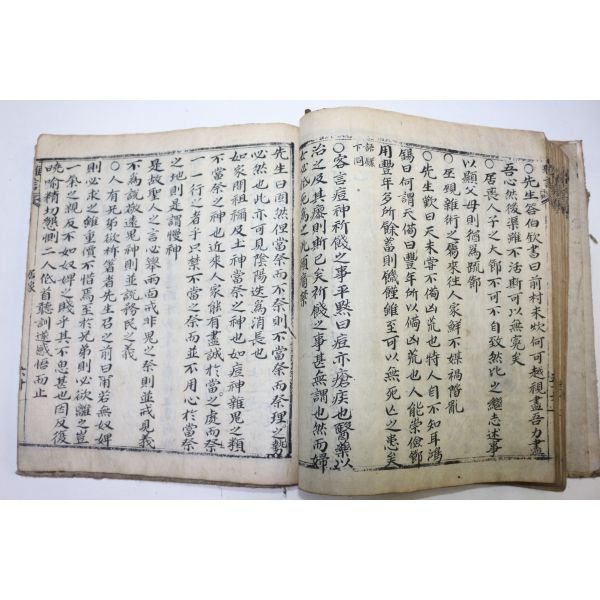 ○先生答伯欽書曰前村未炊何可越視盡吾力盡
吾心然後渠雖不活斯可以無寃矣
○居喪人子之大節不可不自致然比之繼志述事
以顯父母則猶爲䟽節
○巫覡雜術之屬來往人家鮮不媒禍階亂
○先生歎曰天未甞不備凶荒也特人自不知耳鴻
錫曰何謂天備曰豊年所以備凶荒也人能崇儉節
用豊年多所餘蓄則饑饉雖至可以無死亡之患矣
語類
下同
○客言痘神祈餞之事平黙曰痘亦瘡疾也醫藥以
治之及其癈則斯已矣祈餞之事甚無謂也然而婦
先生曰固然但當祭而不祭則不當祭而祭理之勢
必然也此亦可見陰陽迭爲消長也
如家間祖禰及土神當祭之神也如痘神雜鬼之類
不當祭之神也近來人家能有盡誠於當之處而祭
一一行之者乎只禁不當之祭而並不用心於當祭
之地則是謂慢神
是故聖人之言必舉而面戒非鬼之祭則並戒見義
不爲說敬遠鬼神則並說務民之義
○人有兄弟欲柝箸者先生召之前曰甭若無奴婢
則必求之雖重價不惜焉至於兄弟則必欲離之豈
一氣之親反不如奴婢之賤乎其不思甚也因反復
曉喻精切懇惻二人低首聽訓遂感悟而止